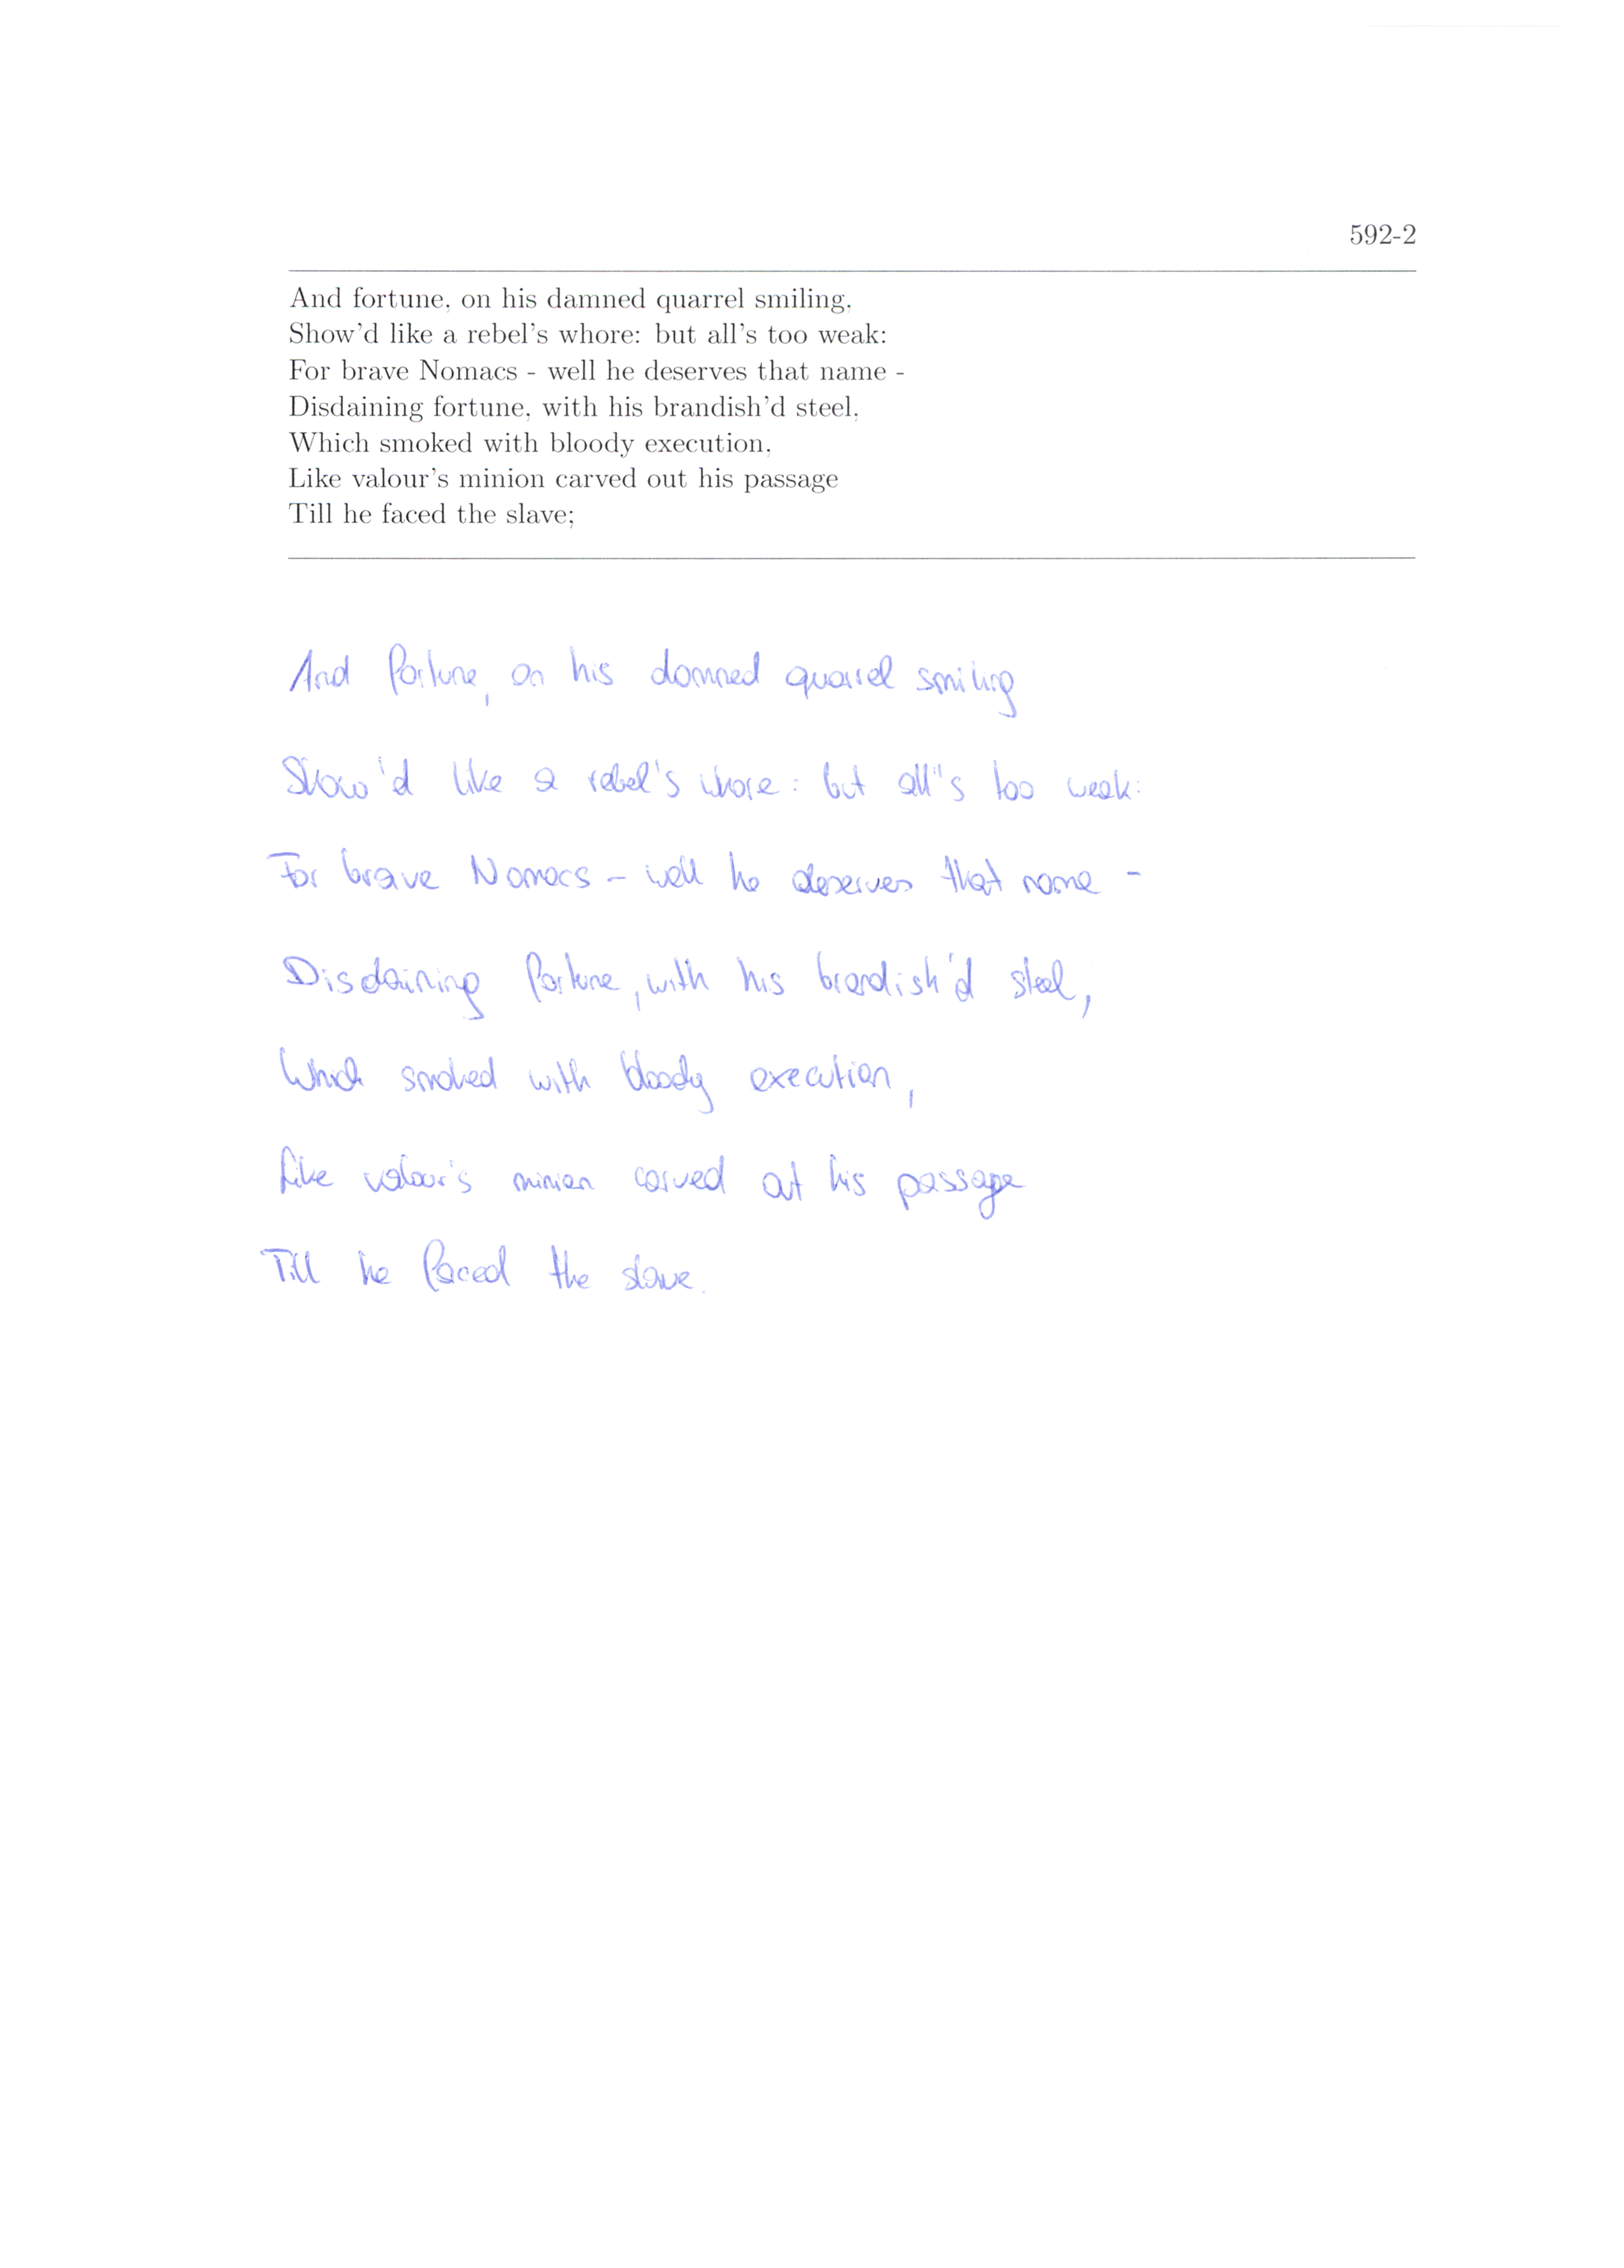 592-2
And fortune, on his damned quarrel smiling,
Show'd like a rebel's whore: but all's too weak:
For brave Nomacs - well he deserves that name -
Disdaining fortune, with his brandish'd steel,
Which smoked with bloody execution,
Like valour's minion carved out his passage
Till he faced the slave;
And fortune, on his damned quarrel smiling
Show'd like a rebel's whore: but all"s too weak:
For brave Nomacs - well he deserves that name -
Disdaining fortune, with his brandish'd steel,
Which smoked with bloody execution,
Like valour's minion carved out his passage
Till he faced the slave.